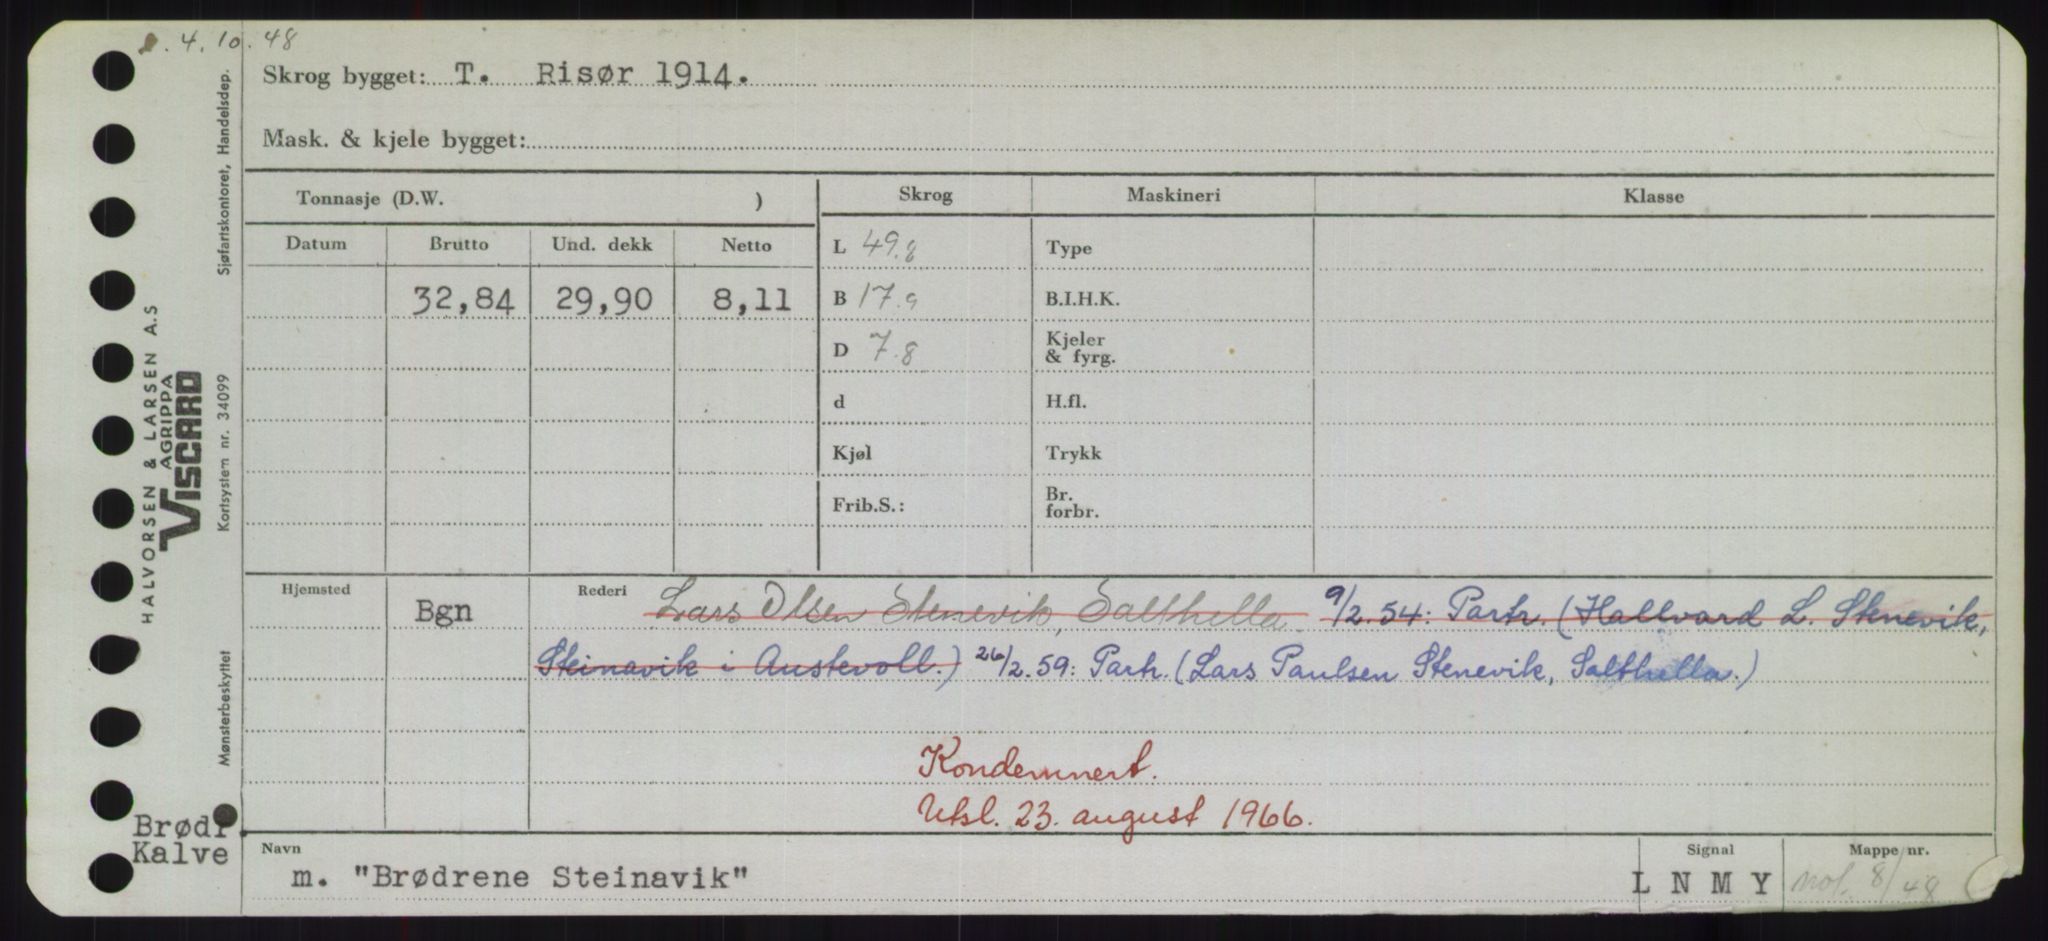 . 4.10.48
Skrog bygget: T. Risør 1914.
Mask. & kjele bygget:
Tonnasje (D.W. )
Skrog
Maskineri
Klasse
Datum
Brutto
Und. dekk
Netto
32,84
29,90
8,11
L 49.8
B 17.9
D 7.8
d
Kjøl
Frib.S.:
Type
B.I.H.K.
Kjeler
& fyrg.
H.fl.
Trykk
Br.
forbr.
Hjemsted
Bgn
Rederi
Lars Olsen Stenevik, Salthella. 9/2.54: Partr. (Hallvard L. Stenevik,
Steinavik i Austevoll.) 26/2.59: Partr. (Lars Paulsen Stenevik, Salthella.)
Kondemnert.
Utsl. 23. august 1966.
Navn
m. "Brødrene Steinavik"
Signal
L N M Y
Mappe nr.
8/48
Brødr.
Kalve
HALVORSEN & LARSEN A.S
AGRIPPA
VISCARD
Sjøfartskontoret, Handelsdep.
Kortsystem nr. 34099
Mønsterbeskyttet